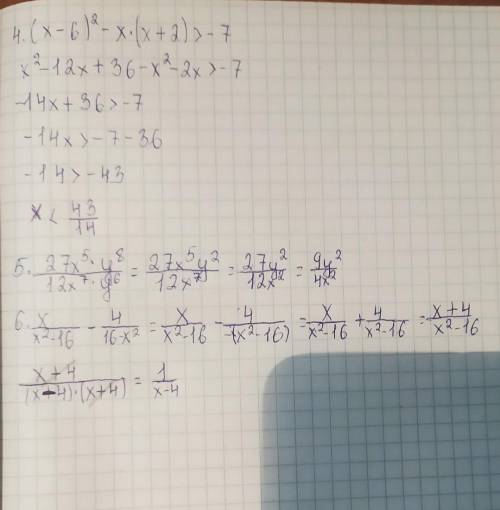 4. (x-6)² - x·(x+2) > -7
x² - 12x + 36 - x² - 2x > -7
-14x + 36 > -7
-14x > -7 - 36
-14 > -43
x < 43/14
5. 27x⁵·y⁸/12x⁷·y⁶ = 27x⁵y²/12x⁷ = 27y²/12x² = 9y²/4x²
6. x/x²-16 - 4/16-x² = x/x²-16 - 4/-(x²-16) = x/x²-16 + 4/x²-16 = x+4/x²-16
x+4/(x-4)·(x+4) = 1/x-4